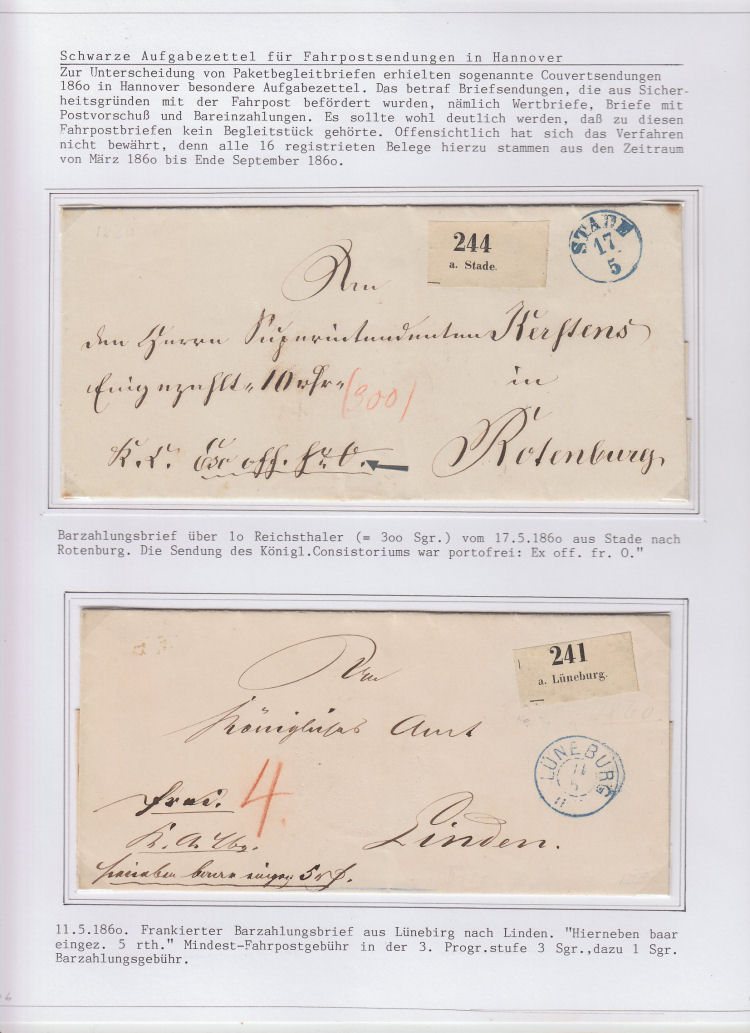 Schwarze Aufgabezettel für Fahrpostsendungen in Hannover
Zur Unterscheidung von Paketbegleitbriefen erhielten sogenannte Couvertsendungen
186o in Hannover besondere Aufgabezettel. Das betraf Briefsendungen, die aus Sicher-
heitsgründen mit der Fahrpost befördert wurden, nämlich Wertbriefe, Briefe mit
Postvorschuß und Bareinzahlungen. Es sollte wohl deutlich werden, daß zu diesen
Fahrpostbriefen kein Begleitstück gehörte. Offensichtlich hat sich das Verfahren
nicht bewährt, denn alle 16 registrierten Belege hierzu stammen aus den Zeitraum
von März 186o bis Ende September 186o.
244
a. Stade.
STADE
17
5
An
den Herrn Superintendenten Kerstens
Eingezahlt 10 rthr
(300)
in
K. C. Ex off. fr. O.
Rotenburg
Barzahlungsbrief über 1o Reichsthaler (= 3oo Sgr.) vom 17.5.186o aus Stade nach
Rotenburg. Die Sendung des Königl.Consistoriums war portofrei: Ex off. fr. O."
241
a. Lüneburg.
An
Königliches Amt
LÜNEBURG
11
5
frei.
4
Linden.
Hierneben baar eingez. 5 rth.
11.5.186o. Frankierter Barzahlungsbrief aus Lünebirg nach Linden. "Hierneben baar
eingez. 5 rth." Mindest-Fahrpostgebühr in der 3. Progr.stufe 3 Sgr.,dazu 1 Sgr.
Barzahlungsgebühr.